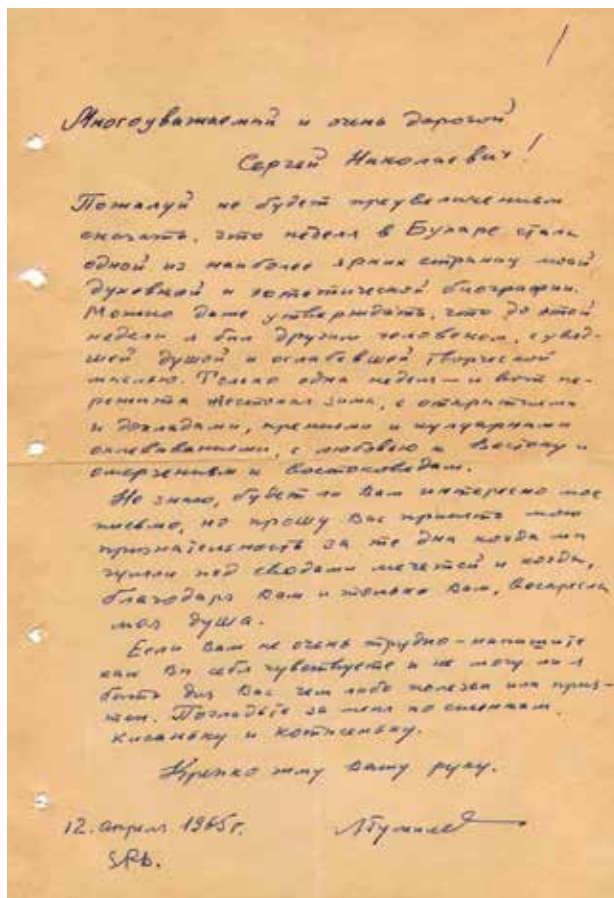 Многоуважаемый и очень дорогой
Сергей Николаевич!
Пожалуй не будет преувеличением
сказать, что неделя в Бухаре стала
одной из наиболее ярких страниц моей
духовной и эстетической биографии.
Можно даже утверждать, что до этой
недели я был другим человеком, с увяд-
шей душой и ослабевшей творческой
мыслью. Только одна неделя – и вот пе-
режита жестокая зима, с открытиями
и докладами, прениями и кулуарными
оплевываниями, с любовью к Востоку и
омерзением к востоковедам.
Не знаю, будет ли Вам интересно мое
письмо, но прошу Вас принять мою
признательность за те дни когда мы
гуляли под сводами мечетей и когда,
благодаря Вам и только Вам, воскресла
моя душа.
Если Вам не очень трудно – напишите
как Вы себя чувствуете и не могу ли я
быть для Вас чем либо полезен или прия-
тен. Погладьте за меня по спинкам
кисаньку и котисеньку.
Крепко жму Вашу руку.
12. апреля 1965 г.
ЛГумилев
SPb.